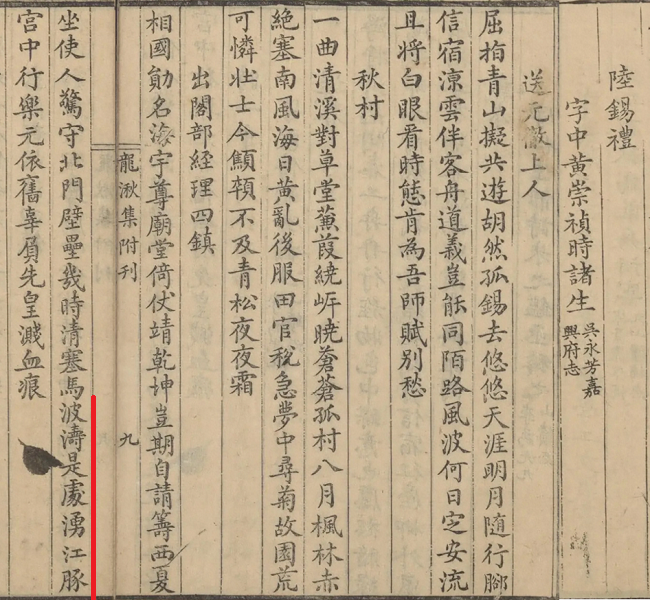 陸錫禮
字中黃崇禎時諸生吳永芳嘉興府志
送元徹上人
屈指青山擬共遊胡然孤錫去悠悠天涯明月隨行腳
信宿涼雲伴客舟道義豈能同陌路風波何日定安流
且將白眼看時態肯為吾師賦別愁
秋村
一曲清溪對草堂蒹葭繞岍曉蒼蒼孤村八月楓林赤
絕塞南風海日黃亂後服田官稅急夢中尋菊故園荒
可憐壯士今顦顇不及青松夜夜霜
出閣部經理四鎮
相國勛名海宇尊廟堂倚仗靖乾坤豈期自請籌西夏
龍湫集附刊 九
坐使人驚守北門壁壘幾時清塞馬波濤是處湧江豚
宮中行樂元依舊辜負先皇濺血痕